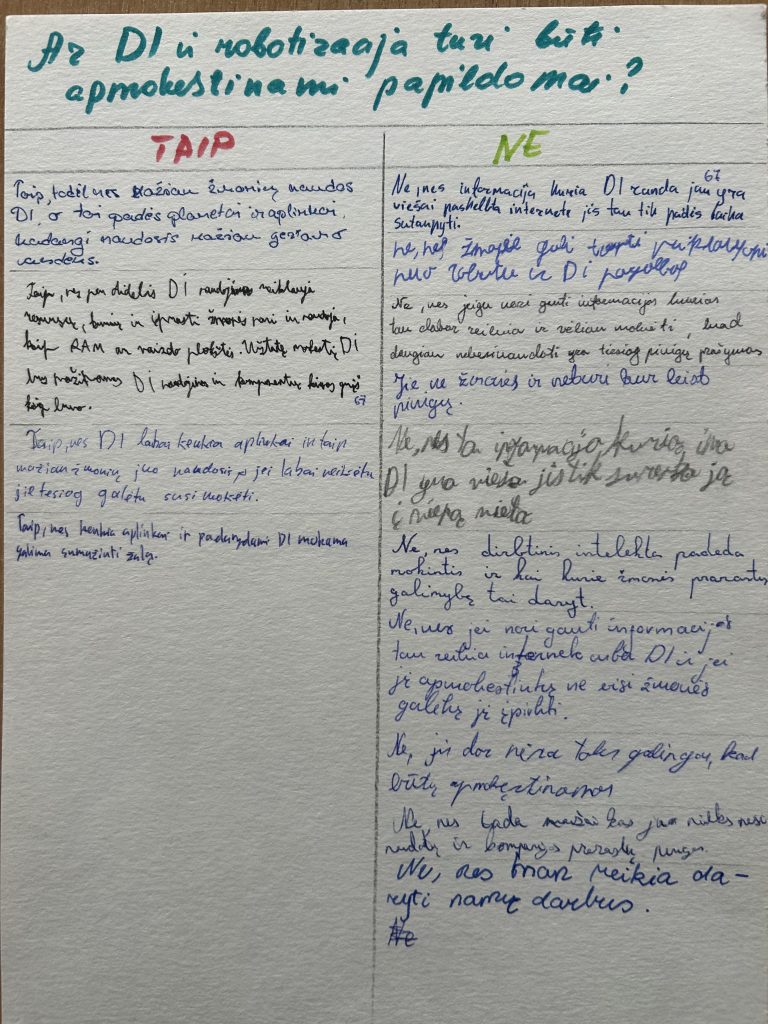 Ar DI ir robotizacija turi būti
apmokestinami papildomai?
TAIP
Taip, todėl nes mažiau žmonių naudos
DI, o tai padės planetai ir aplinkai,
kadangi naudosis mažiau geriamo
vandens.
Taip, nes per didelis DI naudojimas reikalauja
resursų, kurių ir įprasti žmonės nori ir naudoja,
kaip RAM ar vaizdo plokštės. Uždėtų mokestį DI
bus DI naudojimas ir komponentų kainos grįš
kaip buvo.
67
Taip, nes DI labai kenkia aplinkai ir taip
mažiau žmonių juo naudosis, o jei labai reikėtų
jie tesiog galėtų susimokėti.
Taip, nes kenkia aplinkai ir padarydami DI mokama
galima sumažinti žalą.
NE
Ne, nes informacija kuria DI randa jau yra
67
viešai paskelbta internete jis tau tik padės laika
sutaupyti.
ne, nes žmogus gali
prie robotų ir DI pagalbos
Ne, nes jeigu nori gauti informacijos kurios
tau dabar reikia ir vėliau mokėti, kad
daugiau nebesinaudoti yra tiesiog pinigų prašymas
Jie ne žmonės ir neturi kur leist
pinigų.
Ne, nes ta informacija, kurią ima
DI yra vieša jis tik suranda ją
į vieną vietą
Ne, nes dirbtinis intelekta padeda
mokintis ir kai kurie žmonės prarastų
galimybę tai daryt.
Ne, nes jei nori gauti informacijos
tau reikia internek arba DI ir jei
jį apmokestintų ne visi žmonės
galėtų jį įpirkti.
Ne, jis dar nėra toks galingas, kad
būtų apmokestinamas
Ne, nes tada mažai kas juo
naudotų ir kompanijos prarastų pinigus.
Ne, nes man reikia da-
ryti namų darbus.
Ne